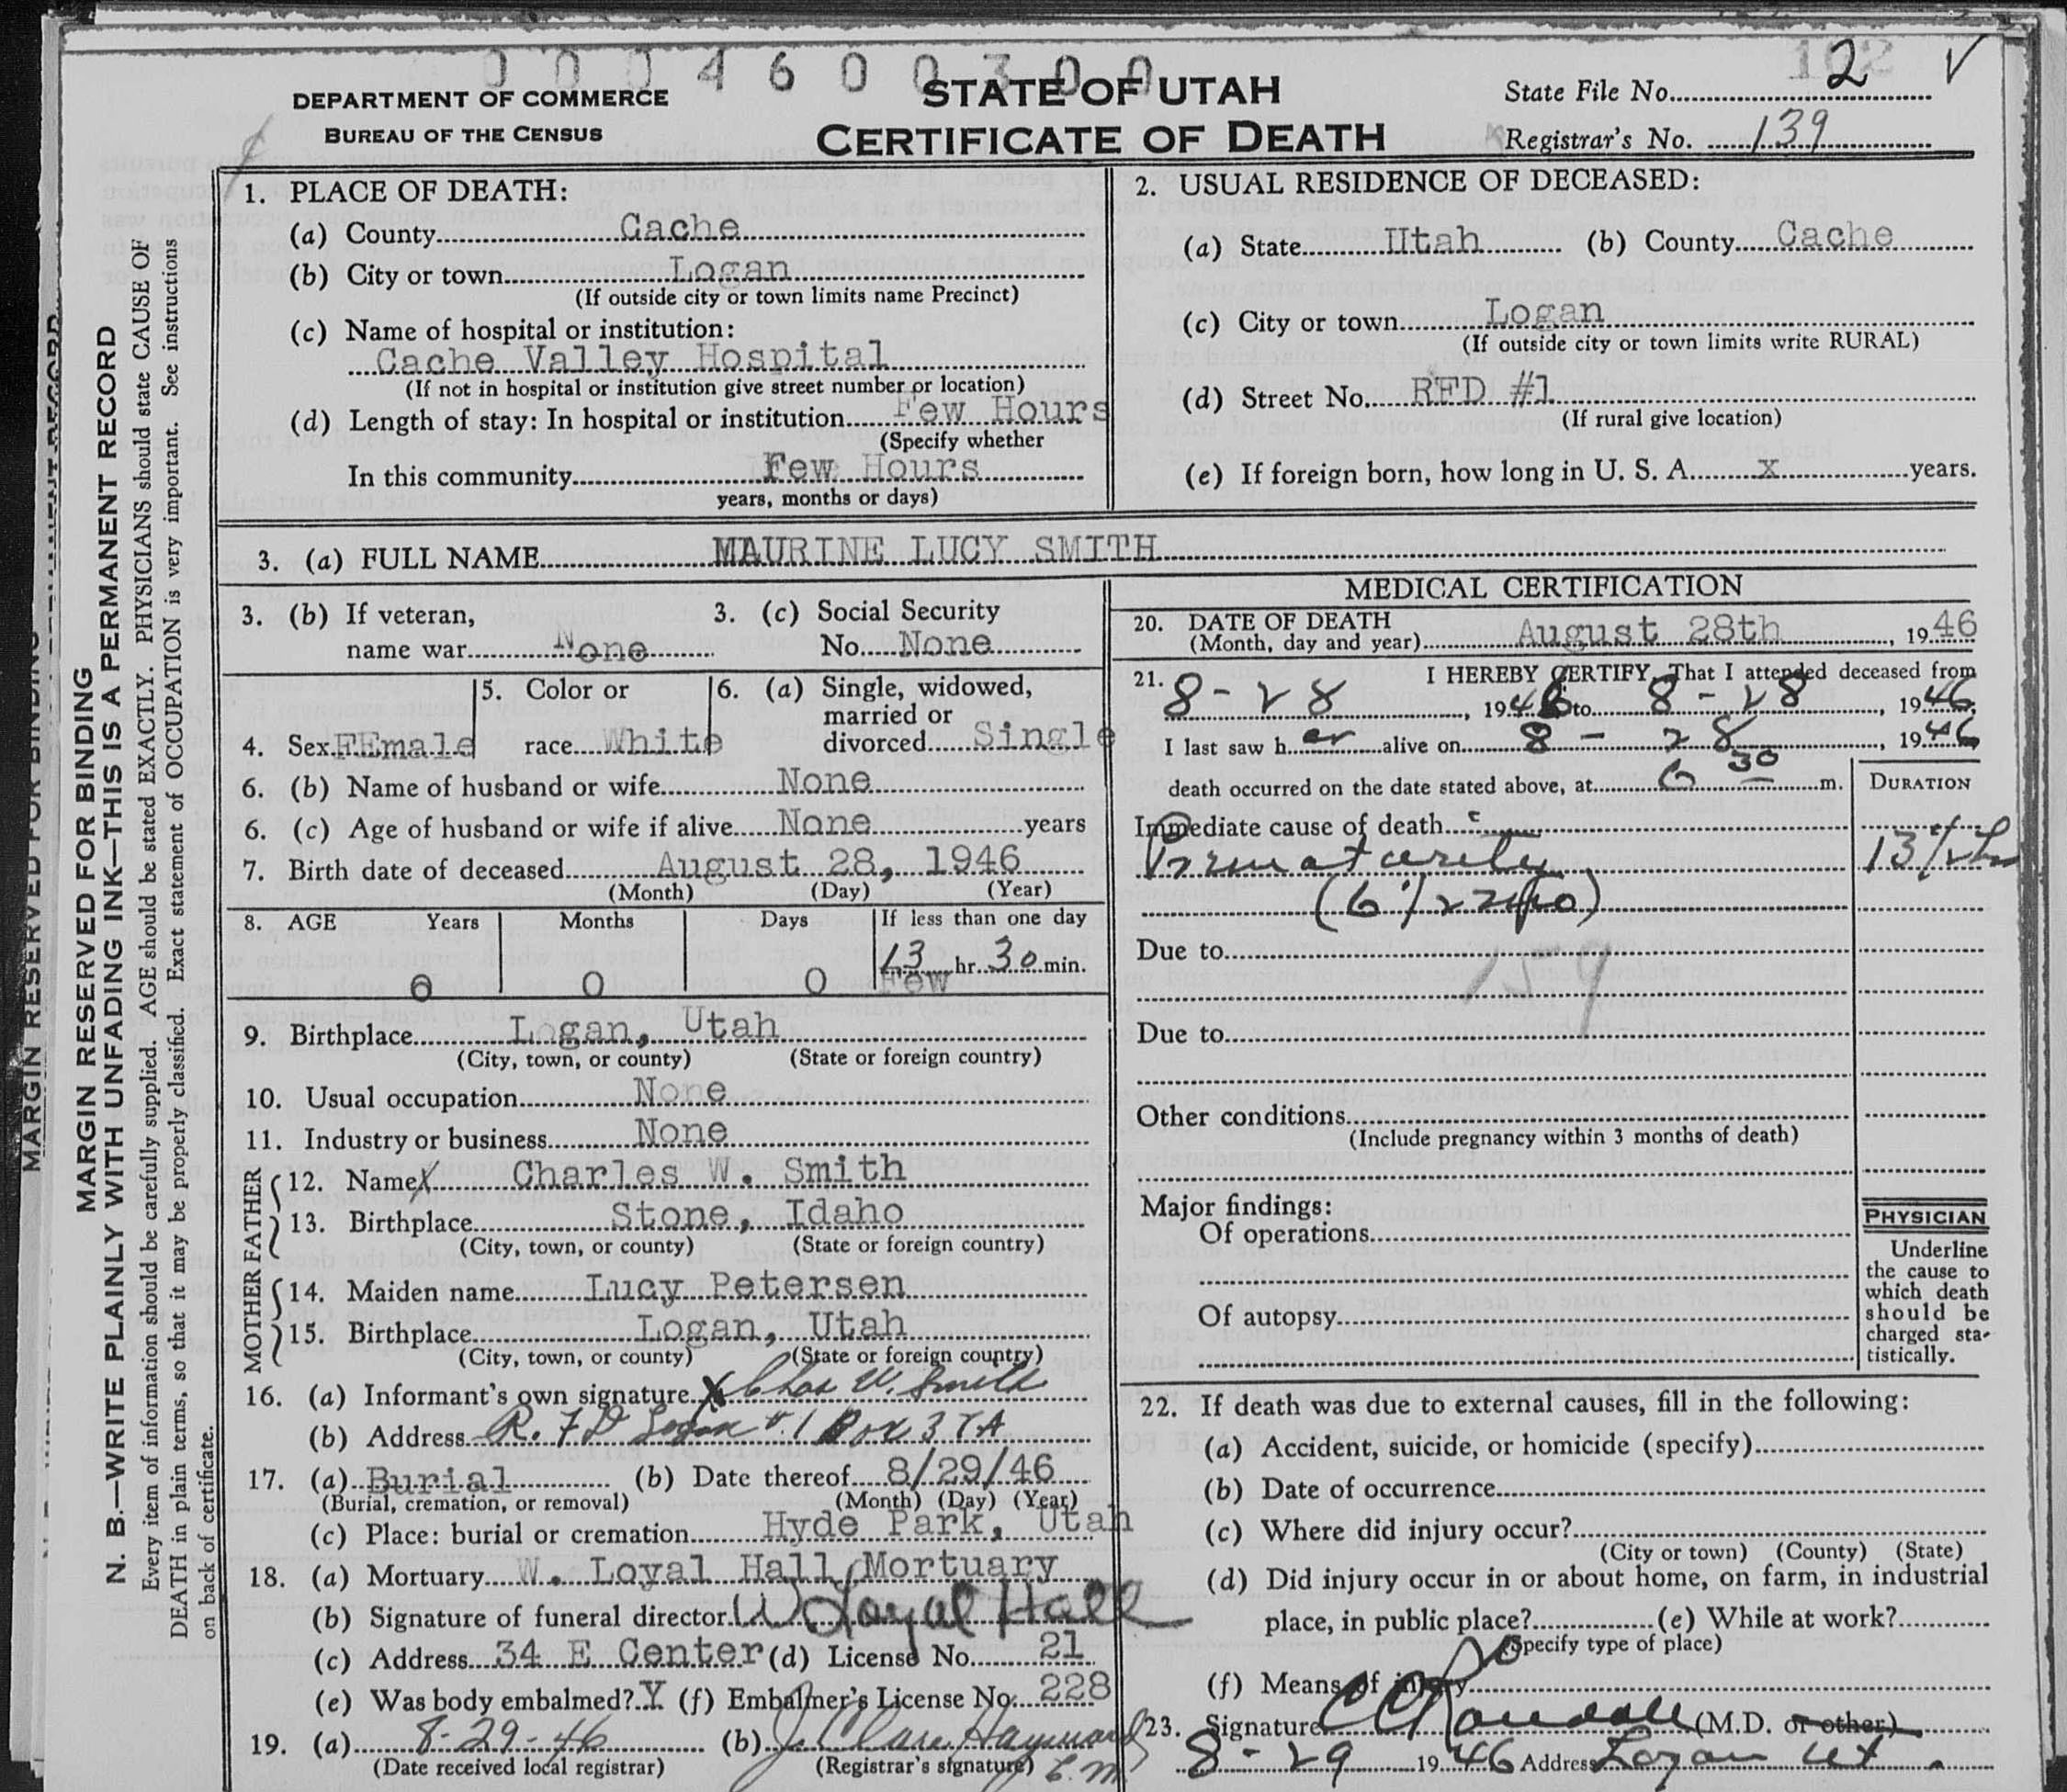 0 0 0 4 6 0 0 3 0 0
DEPARTMENT OF COMMERCE
BUREAU OF THE CENSUS
STATE OF UTAH
CERTIFICATE OF DEATH
State File No. 2
Registrar's No. 139
MARGIN RESERVED FOR BINDING
N. B.—WRITE PLAINLY WITH UNFADING INK—THIS IS A PERMANENT RECORD
Every item of information should be carefully supplied. AGE should be stated EXACTLY. PHYSICIANS should state CAUSE OF
DEATH in plain terms, so that it may be properly classified. Exact statement of OCCUPATION is very important. See instructions
on back of certificate.
1. PLACE OF DEATH:
(a) County Cache
(b) City or town Logan
(If outside city or town limits name Precinct)
(c) Name of hospital or institution:
Cache Valley Hospital
(If not in hospital or institution give street number or location)
(d) Length of stay: In hospital or institution Few Hours
(Specify whether
In this community Few Hours
years, months or days)
2. USUAL RESIDENCE OF DECEASED:
(a) State Utah (b) County Cache
(c) City or town Logan
(If outside city or town limits write RURAL)
(d) Street No. RFD #1
(If rural give location)
(e) If foreign born, how long in U. S. A. x years.
3. (a) FULL NAME MAURINE LUCY SMITH
3. (b) If veteran, name war None
3. (c) Social Security No. None
4. Sex FEmale
5. Color or race White
6. (a) Single, widowed, married or divorced Single
6. (b) Name of husband or wife None
6. (c) Age of husband or wife if alive None years
7. Birth date of deceased August 28, 1946
(Month) (Day) (Year)
8. AGE Years Months Days If less than one day
0 0 0 13 hr. 30 min.
Few
9. Birthplace Logan, Utah
(City, town, or county) (State or foreign country)
10. Usual occupation None
11. Industry or business None
FATHER
12. Name X Charles W. Smith
13. Birthplace Stone, Idaho
(City, town, or county) (State or foreign country)
MOTHER
14. Maiden name Lucy Petersen
15. Birthplace Logan, Utah
(City, town, or county) (State or foreign country)
16. (a) Informant's own signature X Chas W. Smith
(b) Address R. F D Logan #1 Box 37A
17. (a) Burial (b) Date thereof 8/29/46
(Burial, cremation, or removal) (Month) (Day) (Year)
(c) Place: burial or cremation Hyde Park, Utah
18. (a) Mortuary W. Loyal Hall Mortuary
(b) Signature of funeral director W Loyal Hall
(c) Address 34 E Center (d) License No. 21
(e) Was body embalmed? Y (f) Embalmer's License No. 228
19. (a) 8-29-46 (b) J. Clare Hayward
(Date received local registrar) (Registrar's signature) E.M
MEDICAL CERTIFICATION
20. DATE OF DEATH
(Month, day and year) August 28th, 1946
21. I HEREBY CERTIFY, That I attended deceased from
8-28, 1946 to 8-28, 1946,
I last saw her alive on 8-28, 1946
death occurred on the date stated above, at 6 30 m.
DURATION
Immediate cause of death
Prematurity 13 1/2 h
(6 1/2
Due to
159
Due to
Other conditions
(Include pregnancy within 3 months of death)
Major findings:
Of operations
Of autopsy
PHYSICIAN
Underline
the cause to
which death
should be
charged sta-
tistically.
22. If death was due to external causes, fill in the following:
(a) Accident, suicide, or homicide (specify)
(b) Date of occurrence
(c) Where did injury occur?
(City or town) (County) (State)
(d) Did injury occur in or about home, on farm, in industrial
place, in public place? (e) While at work?
(Specify type of place)
(f) Means of injury
23. Signature C C Randall (M.D. or other)
8-29 1946 Address Logan Ut.